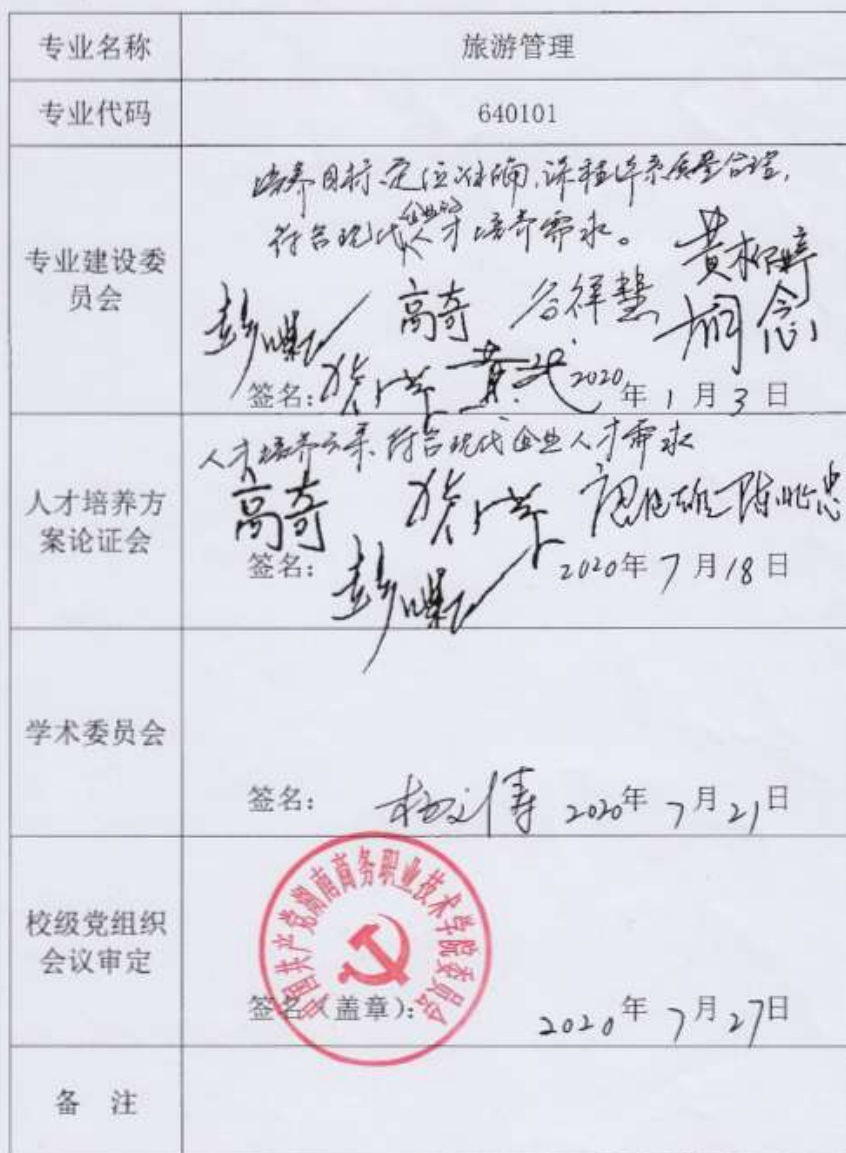 专业名称 旅游管理
专业代码 640101
专业建设委
员会
培养目标定位准确,课程体系质量合理,
符合现代企业的人才培养需求。
高奇 谷祥慧 黄柳婷
签名: 2020年1月3日
人才培养方
案论证会
人才培养方案符合现代企业人才需求
高奇
签名: 2020年7月18日
学术委员会
签名: 2020年7月21日
校级党组织
会议审定
中国共产党湖南商务职业技术学院委员会
签名(盖章): 2020年7月27日
备 注